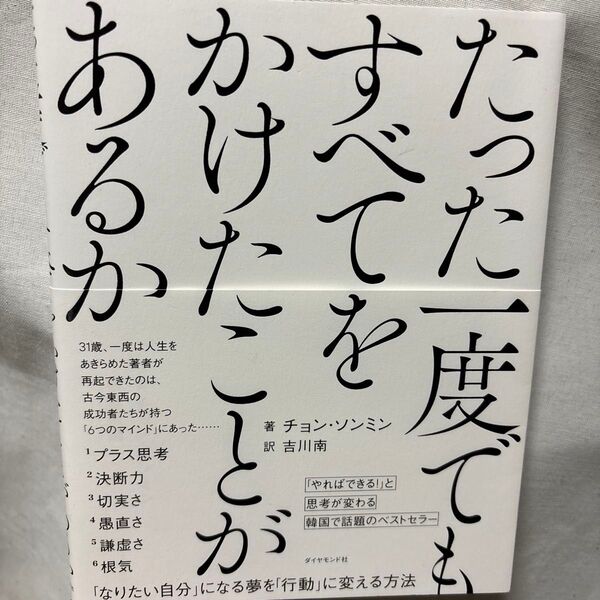 たった一度でも
すべてを
かけたことが
あるか
31歳、一度は人生を
あきらめた著者が
再起できたのは、
古今東西の
成功者たちが持つ
「6つのマインド」にあった……
1 プラス思考
2 決断力
3 切実さ
4 愚直さ
5 謙虚さ
6 根気
著 チョン・ソンミン
訳 吉川南
「やればできる!」と
思考が変わる
韓国で話題のベストセラー
ダイヤモンド社
「なりたい自分」になる夢を「行動」に変える方法